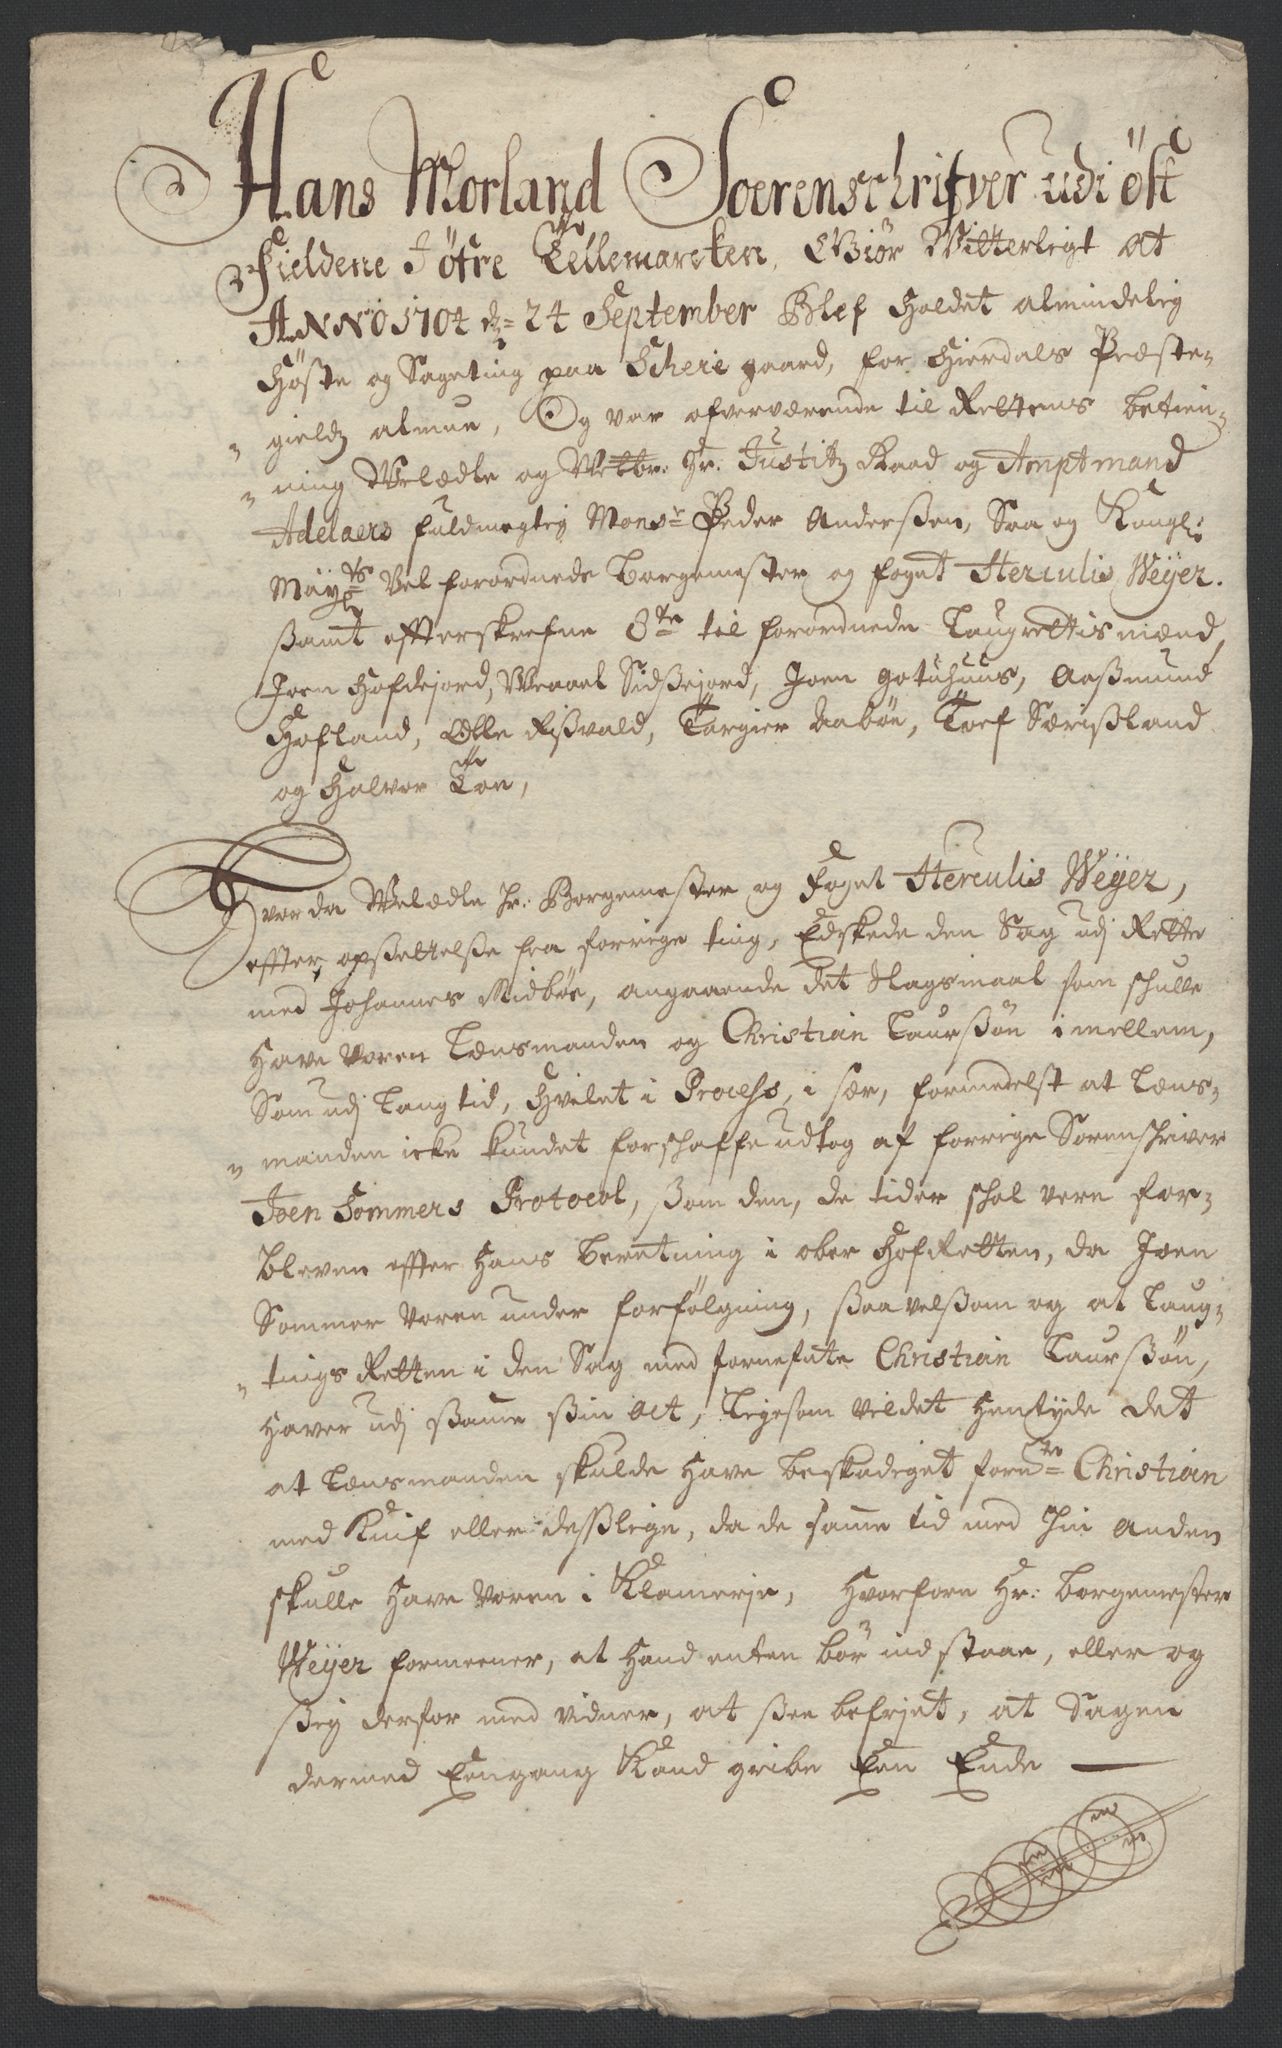 Hans Morland Soerenschrifver udi öst
Fieldene I öfre Tellemarcken, Giör Vitterligt at
ANNO 1704 d: 24 September Blef holdet almindelig
Höste og Sageting paa Scheie gaard, for Hierdals Præste-
gieldz almue, Og var ofverværende til Rettens betien-
ning Velædle og Velbr: Hr. Justitz Raad og Amptmand
Adelaers fuldmegtig Monsr Peder Anderßen, Saa og Kongl:
Mayts Vel forordnede Borgemester og foget Herculis Weÿer.
ßamt efterskrefne 8te til forordnede Laugrettismænd,
Joen Hofdejord, Wraael Sidßejord, Joen gotuhuus, Aaßmund
Hofland, Olle Rißvald, Targier Aabøe, Toef Særißland
og Halvor Toe,
Hvor da Velædle Hr: Borgemester og Foget Herculis Weÿer,
effter opßettelße fra forrige ting, Edskede den Sag udj Rette
med Johannes Midbøe, angaaende det Slagsmaal som schulle
have Veren Lensmanden og Christian Laurßøn imellem,
Som udj Langtid, Hvilet i Process, i sær, formedelst at Lens-
manden icke kundet forschaffe udtog af forrige Sorenschriver
Joen Sommers Protocol, ßom den, de tider schal vere for-
bleven effter hans beretning i ober Hof Retten, da Joen
Sommer Veren under forfölgning, ßaavelßom og at Laug-
tings Retten i den Sag med fornefnte Christian Laurßøn,
haver udj ßamme ßin act, ligesom Vildet hentyde det
at Lensmanden skulde have beskadiget fornte Christian
med Knif eller deßlige, da de samme tid med hin anden
skulle have Veren i Klamerje, Hvorforn Hr: borgemester
Weÿer formeener, at hand enten bör indstaae, eller og
ßig derfor med vidner, at ßee befrjet, at Sagen
dermed Eengang Kand gribe Een Ende